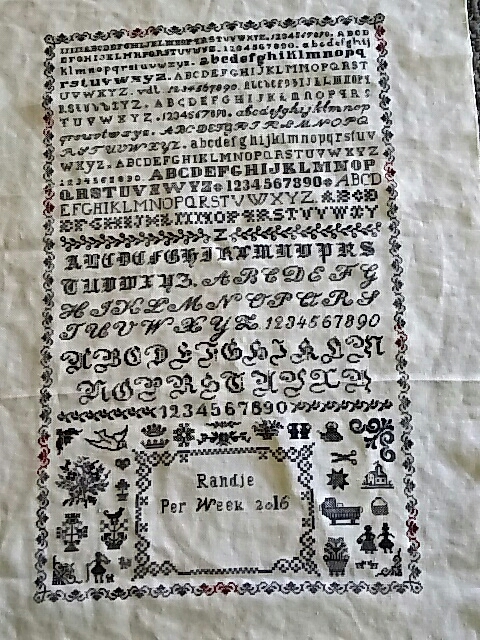 ABCDEFGHIJKLMNOPQRSTUVWXYZ.1234567890. ABCD
EFGHIJKLMNOPQRSTUVWXYZ.1234567890. abcdefghij
klmnopqrstuvwxyz. abcdefghijklmnopq
rstuvwxyz. ABCDEFGHIJKLMNOPQRST
UVWXYZ. 1234567890.
RSTUVWXYZ. ABCDEFGHIJKLMNOPQRS
TUVWXYZ. 1234567890. abcdefghijklmnop
qrstuvwxyz. ABCDEFGHIJKLMNOPQ
RSTUVWXYZ. abcdefghijklmnopqrstuv
wxyz. ABCDEFGHIJKLMNOPQRSTUVWXYZ
1234567890. ABCDEFGHIJKLMNOP
QRSTUVWXYZ 1234567890 ABCD
EFGHIJKLMNOPQRSTUVWXYZ. ABCD
EFGHIJKLMNOPQRSTUVWXY
Z
ABCDEFGHIKLMNOPQRS
TUVWXYZ. ABCDEFG
HIJKLMNOPQRS
TUVWXYZ 1234567890
ABCDEFGHIKLM
NOPQRSTUVXY
1234567890
Randje
Per Week 2016